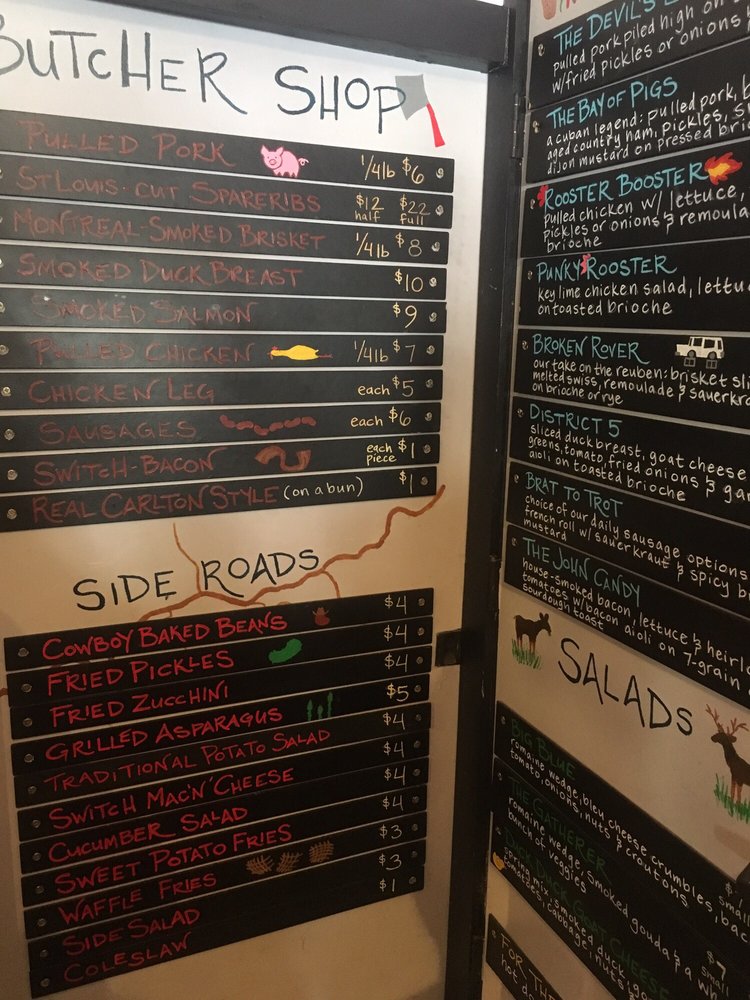 BUTCHER SHOP
PULLED PORK 1/4lb $6
ST LOUIS-CUT SPARERIBS $12 half $22 full
MONTREAL SMOKED BRISKET 1/4lb $8
SMOKED DUCK BREAST $10
SMOKED SALMON $9
PULLED CHICKEN 1/4lb $7
CHICKEN LEG each $5
SAUSAGES each $6
SWITCH-BACON each piece $1
REAL CARLTON STYLE (on a bun) $1
SIDE ROADS
COWBOY BAKED BEANS $4
FRIED PICKLES $4
FRIED ZUCCHINI $4
GRILLED ASPARAGUS $5
TRADITIONAL POTATO SALAD $4
SWITCH MAC'N'CHEESE $4
CUCUMBER SALAD $4
SWEET POTATO FRIES $4
WAFFLE FRIES $3
SIDE SALAD $3
COLESLAW $1
THE DEVIL'S
pulled pork piled high on
w/fried pickles or onions
THE BAY OF PIGS
a cuban legend: pulled pork,
aged country ham, pickles,
dijon mustard on pressed
ROOSTER BOOSTER
pulled chicken w/ lettuce,
pickles or onions &
brioche
PUNKY ROOSTER
key lime chicken salad,
on toasted brioche
BROKEN ROVER
our take on the reuben: brisket
melted swiss, remoulade &
on brioche or rye
DISTRICT 5
sliced duck breast, goat cheese
greens, tomato, fried onions &
aioli on toasted brioche
BRAT TO TROT
choice of our daily sausage options
french roll w/ sauerkraut & spicy
mustard
THE JOHN CANDY
house-smoked bacon, lettuce &
tomatoes w/bacon aioli on 7-grain
sourdough toast
SALADS
BIG BLUE
romaine wedge, bleu cheese crumbles,
tomato, onions, nuts & croutons
THE GATHERER
romaine wedge, smoked gouda & a
bunch of veggies
DUCK DUCK GOAT CHEESE
spring mix, smoked duck,
tomatoes, cabbage, nuts &
FOR